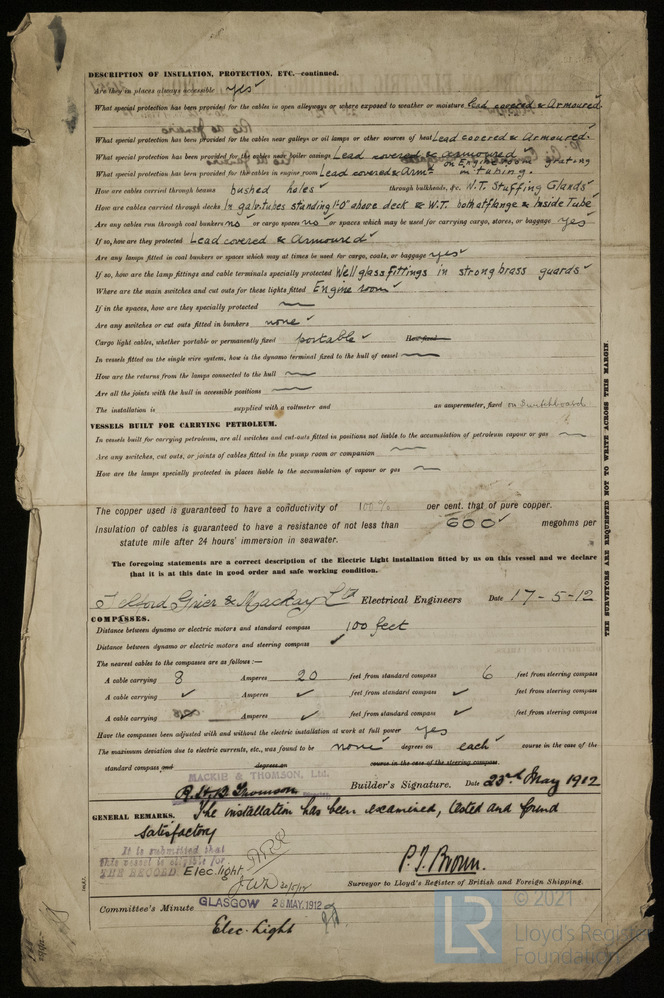 DESCRIPTION OF INSULATION, PROTECTION, ETC.—continued.
Are they in places always accessible yes
What special protection has been provided for the cables in open alleyways or where exposed to weather or moisture Lead covered & Armoured.
What special protection has been provided for the cables near galleys or oil lamps or other sources of heat Lead covered & Armoured.
What special protection has been provided for the cables near boiler casings Lead covered & armoured
What special protection has been provided for the cables in engine room Lead covered & Arm on Engine room grating in tubing.
How are cables carried through beams bushed holes through bulkheads, &c. W.T. Stuffing Glands
How are cables carried through decks In galv. tubes standing 1'-0" above deck & W.T. both at flange & inside Tube
Are any cables run through coal bunkers no or cargo spaces no or spaces which may be used for carrying cargo, stores, or baggage yes
If so, how are they protected Lead covered & Armoured
Are any lamps fitted in coal bunkers or spaces which may at times be used for cargo, coals, or baggage yes
If so, how are the lamp fittings and cable terminals specially protected Well glass fittings in strong brass guards
Where are the main switches and cut outs for these lights fitted Engine room
If in the spaces, how are they specially protected
Are any switches or cut outs fitted in bunkers none
Cargo light cables, whether portable or permanently fixed portable How fixed
In vessels fitted on the single wire system, how is the dynamo terminal fixed to the hull of vessel
How are the returns from the lamps connected to the hull
Are all the joints with the hull in accessible positions
The installation is supplied with a voltmeter and an amperemeter, fixed on Switchboard
VESSELS BUILT FOR CARRYING PETROLEUM.
In vessels built for carrying petroleum, are all switches and cut-outs fitted in positions not liable to the accumulation of petroleum vapour or gas
Are any switches, cut outs, or joints of cables fitted in the pump room or companion
How are the lamps specially protected in places liable to the accumulation of vapour or gas
The copper used is guaranteed to have a conductivity of 100% per cent. that of pure copper.
Insulation of cables is guaranteed to have a resistance of not less than 600 megohms per
statute mile after 24 hours' immersion in seawater.
The foregoing statements are a correct description of the Electric Light installation fitted by us on this vessel and we declare
that it is at this date in good order and safe working condition.
Telford Grier & Mackay Ld Electrical Engineers Date 17-5-12
COMPASSES.
Distance between dynamo or electric motors and standard compass 100 feet
Distance between dynamo or electric motors and steering compass ✓
The nearest cables to the compasses are as follows:—
A cable carrying 8 Amperes 20 feet from standard compass 6 feet from steering compass
A cable carrying ✓ Amperes ✓ feet from standard compass ✓ feet from steering compass
A cable carrying ✓ Amperes ✓ feet from standard compass ✓ feet from steering compass
Have the compasses been adjusted with and without the electric installation at work at full power yes
The maximum deviation due to electric currents, etc., was found to be none degrees on each course in the case of the
standard compass and degrees on course in the case of the steering compass.
MACKIE & THOMSON, Ltd.
Thomson Builder's Signature. Date 23rd May 1912
GENERAL REMARKS. The installation has been examined, tested and found
satisfactory
It is submitted that
this vessel is eligible for
THE RECORD. Elec. light
P. J. Brown.
Surveyor to Lloyd's Register of British and Foreign Shipping.
Committee's Minute GLASGOW 28 MAY. 1912
Elec. Light
THE SURVEYORS ARE REQUESTED NOT TO WRITE ACROSS THIS MARGIN
LR
© 2021
Lloyd's Register
Foundation